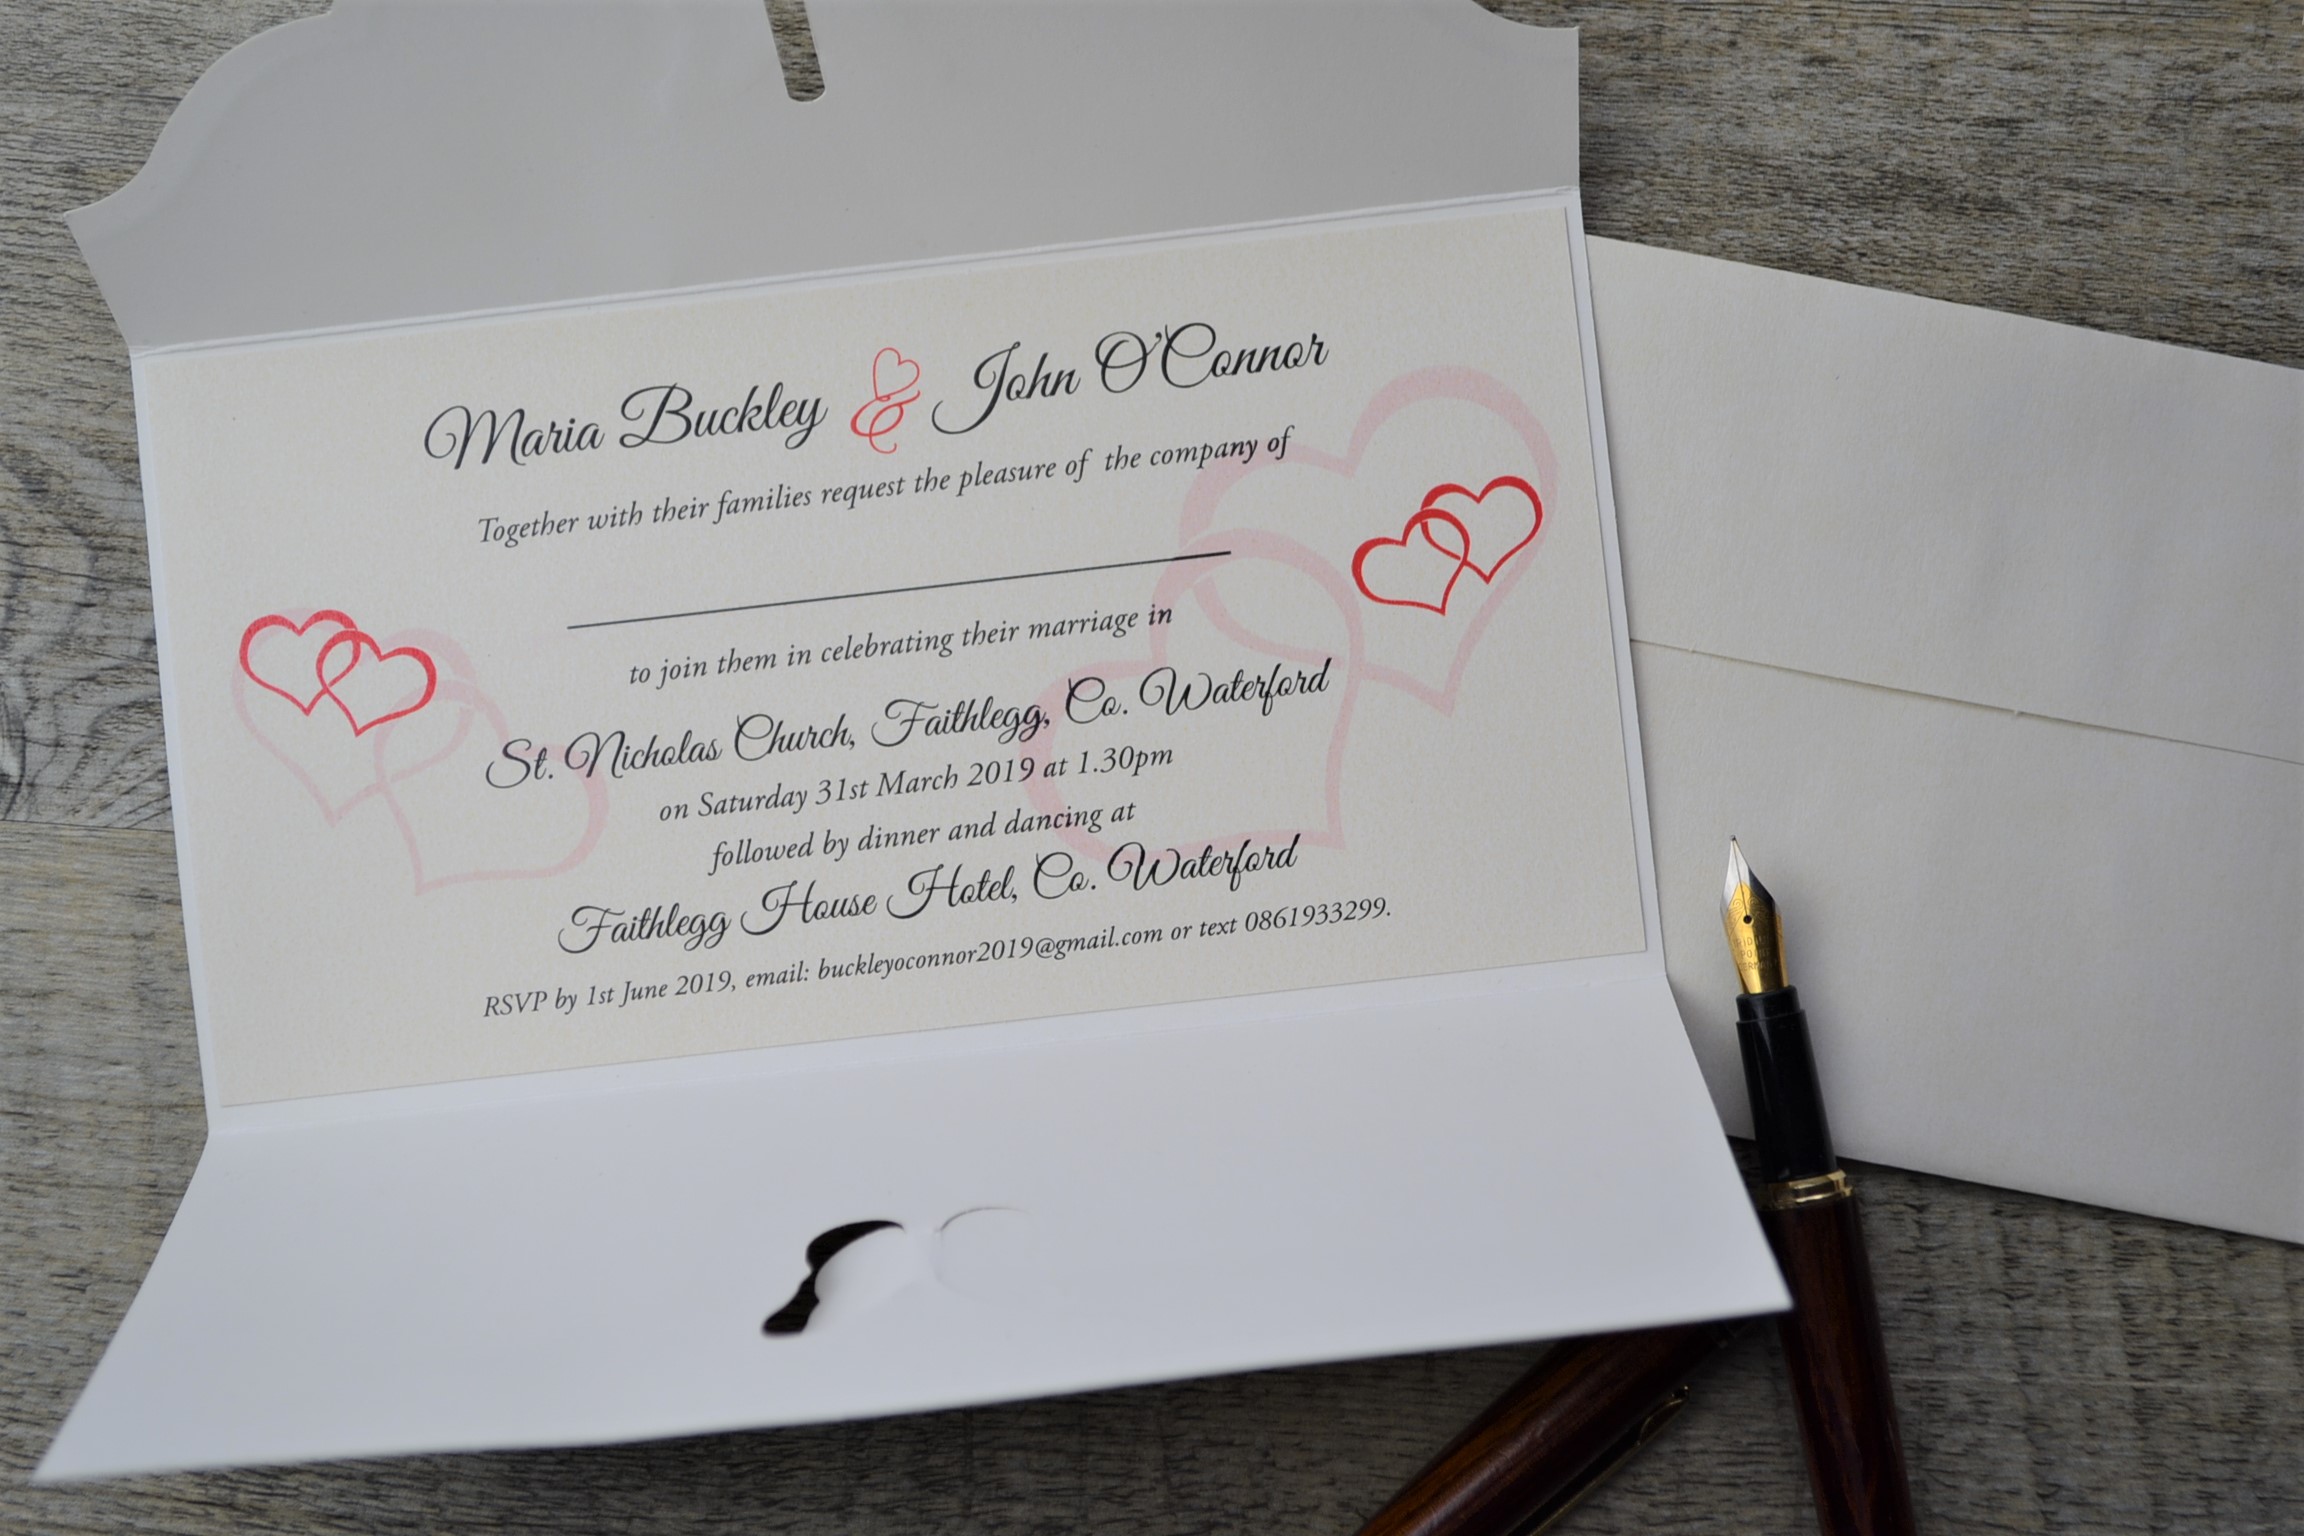 Maria Buckley & John O'Connor
Together with their families request the pleasure of the company of
to join them in celebrating their marriage in
St. Nicholas Church, Faithlegg, Co. Waterford
on Saturday 31st March 2019 at 1.30pm
followed by dinner and dancing at
Faithlegg House Hotel, Co. Waterford
RSVP by 1st June 2019, email: buckleyoconnor2019@gmail.com or text 0861933299.